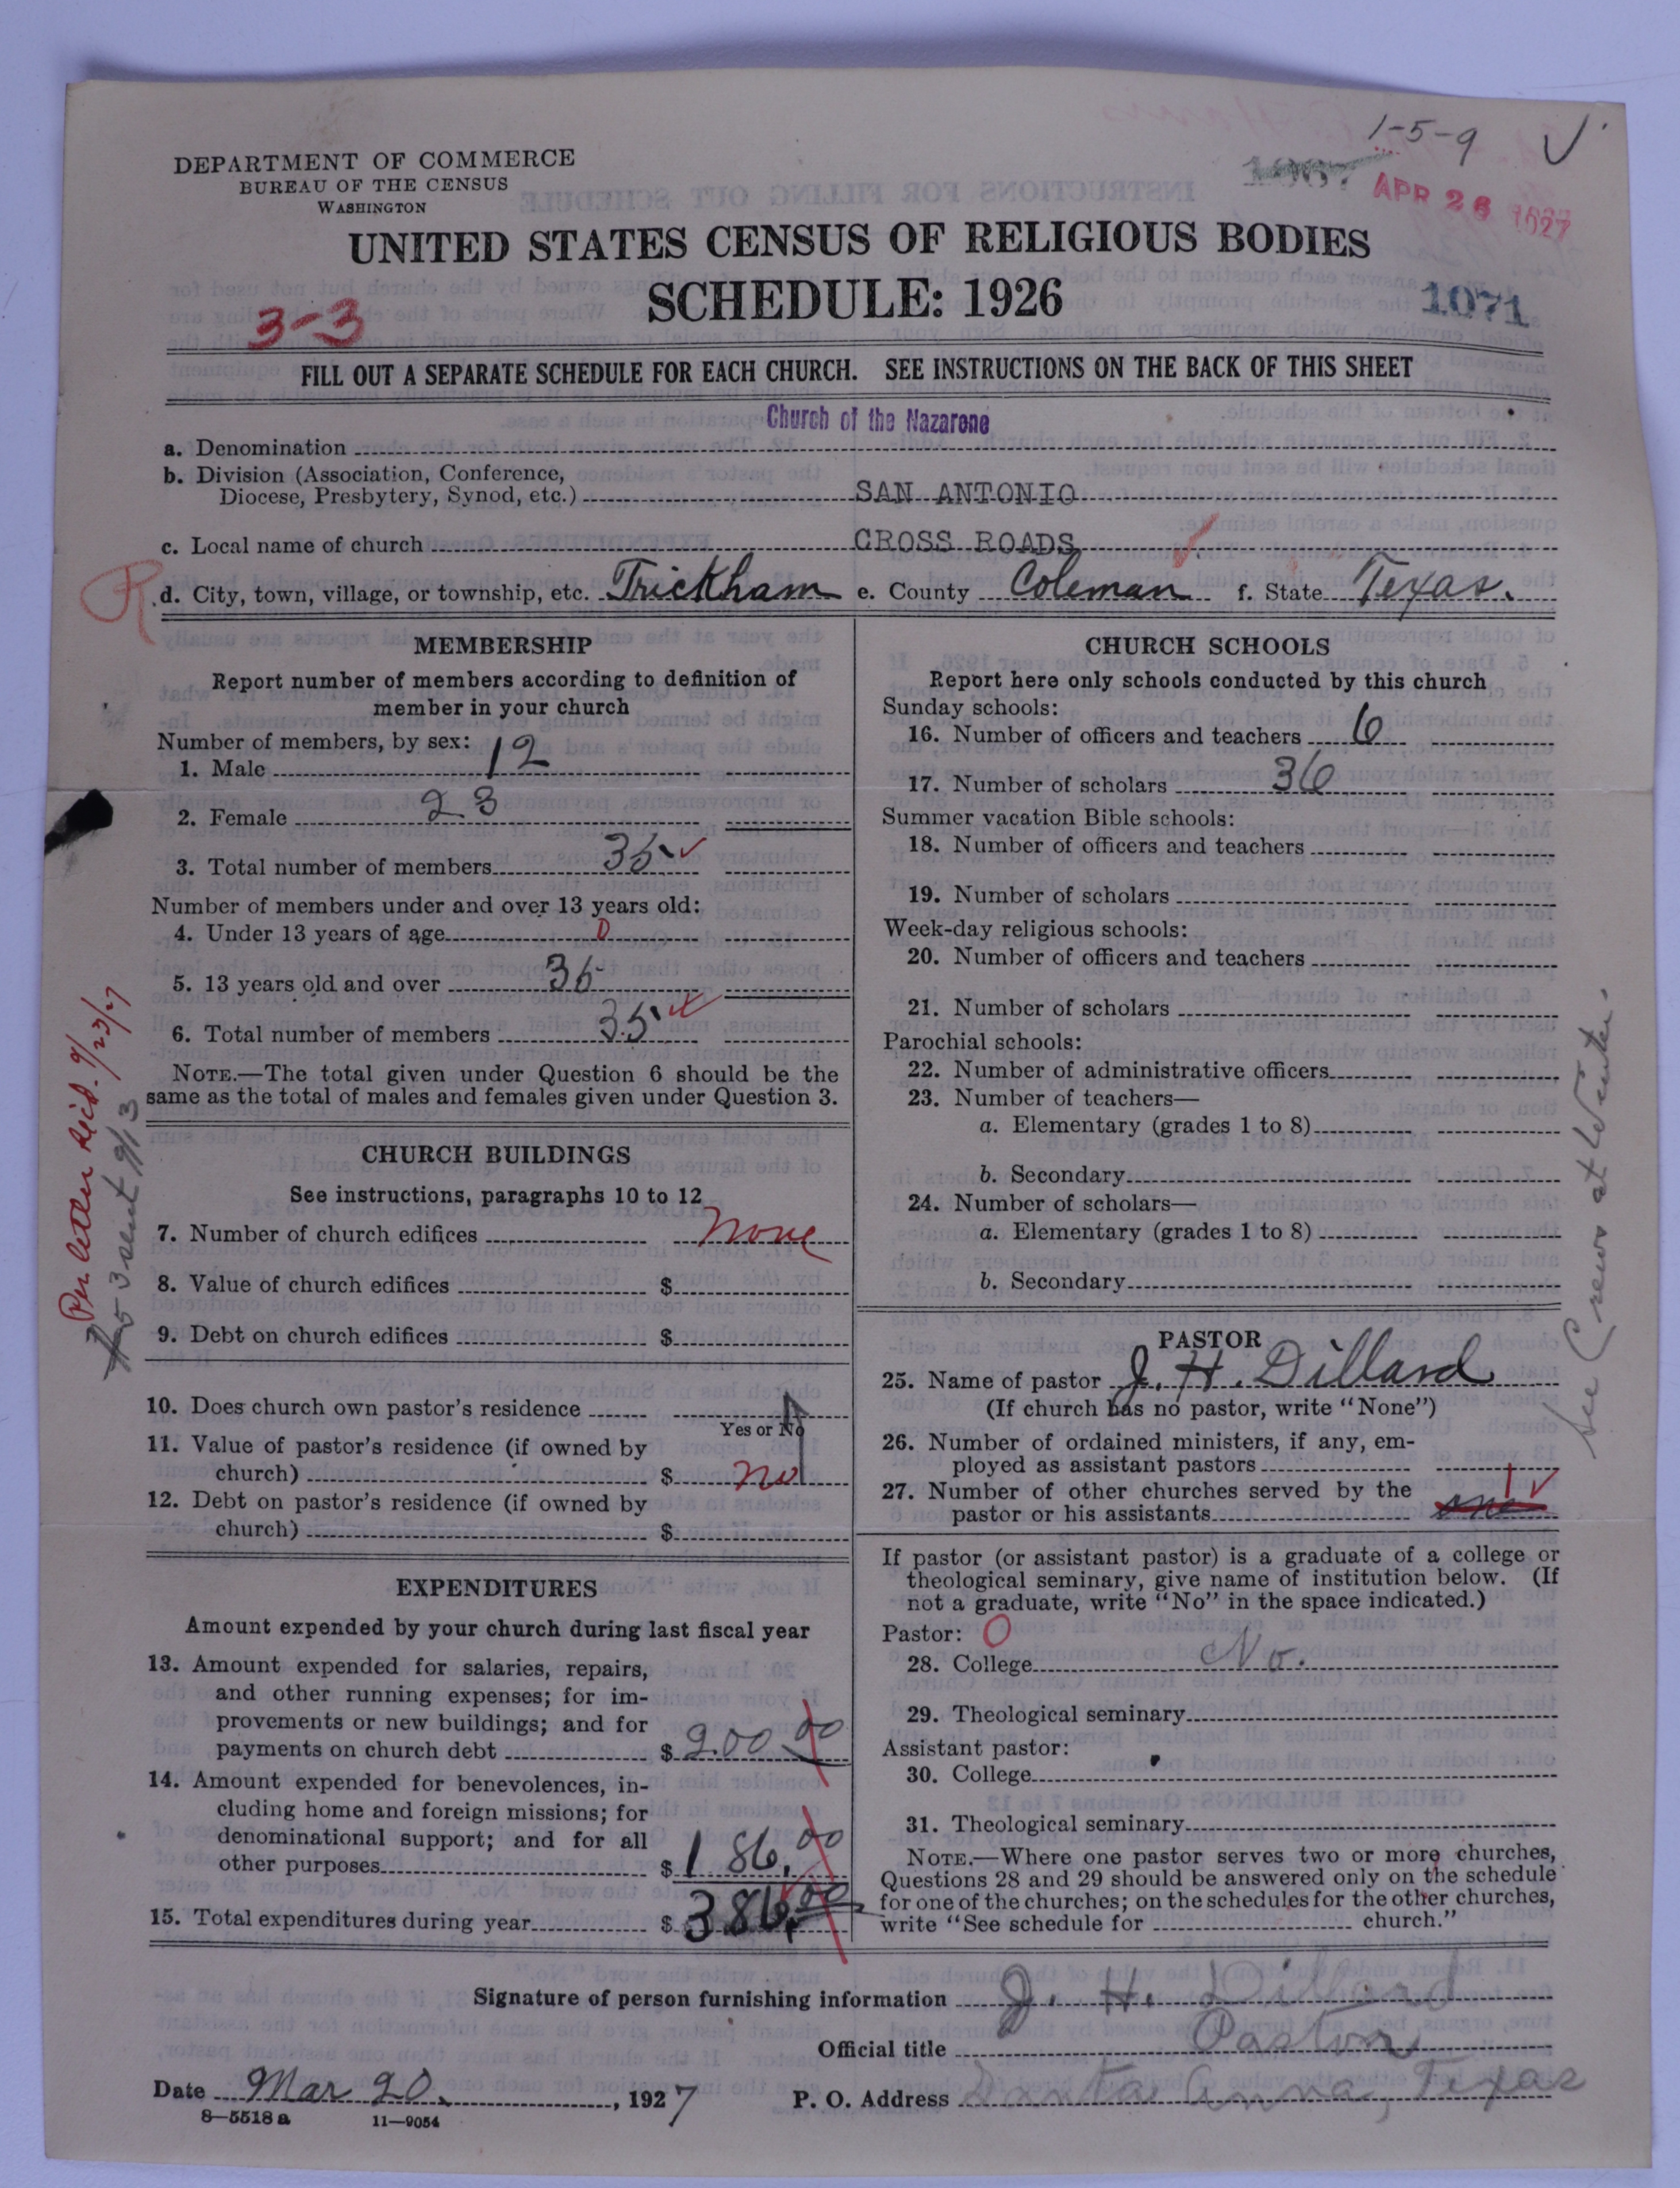 1-5-9 ✓
DEPARTMENT OF COMMERCE
BUREAU OF THE CENSUS
WASHINGTON
APR 26 1927
UNITED STATES CENSUS OF RELIGIOUS BODIES
SCHEDULE: 1926
1071
3-3
FILL OUT A SEPARATE SCHEDULE FOR EACH CHURCH. SEE INSTRUCTIONS ON THE BACK OF THIS SHEET
Church of the Nazarene
a. Denomination
b. Division (Association, Conference,
Diocese, Presbytery, Synod, etc.) SAN ANTONIO
c. Local name of church CROSS ROADS
R
d. City, town, village, or township, etc. Trickham e. County Coleman f. State Texas.
MEMBERSHIP
Report number of members according to definition of
member in your church
Number of members, by sex:
1. Male 12
2. Female 23
3. Total number of members 35 ✓
Number of members under and over 13 years old:
4. Under 13 years of age 0
5. 13 years old and over 35
6. Total number of members 35
NOTE.—The total given under Question 6 should be the
same as the total of males and females given under Question 3.
CHURCH BUILDINGS
See instructions, paragraphs 10 to 12
7. Number of church edifices none
8. Value of church edifices $
9. Debt on church edifices $
10. Does church own pastor's residence
Yes or No
11. Value of pastor's residence (if owned by
church) $ no
12. Debt on pastor's residence (if owned by
church) $
EXPENDITURES
Amount expended by your church during last fiscal year
13. Amount expended for salaries, repairs,
and other running expenses; for im-
provements or new buildings; and for
payments on church debt $ 200 00
14. Amount expended for benevolences, in-
cluding home and foreign missions; for
denominational support; and for all
other purposes $ 186.00
15. Total expenditures during year $ 386.00
CHURCH SCHOOLS
Report here only schools conducted by this church
Sunday schools:
16. Number of officers and teachers 6
17. Number of scholars 36
Summer vacation Bible schools:
18. Number of officers and teachers
19. Number of scholars
Week-day religious schools:
20. Number of officers and teachers
21. Number of scholars
Parochial schools:
22. Number of administrative officers
23. Number of teachers—
a. Elementary (grades 1 to 8)
b. Secondary
24. Number of scholars—
a. Elementary (grades 1 to 8)
b. Secondary
PASTOR
25. Name of pastor J. H. Dillard
(If church has no pastor, write "None")
26. Number of ordained ministers, if any, em-
ployed as assistant pastors
27. Number of other churches served by the
pastor or his assistants one 1 ✓
If pastor (or assistant pastor) is a graduate of a college or
theological seminary, give name of institution below. (If
not a graduate, write "No" in the space indicated.)
Pastor: O
28. College No.
29. Theological seminary
Assistant pastor:
30. College
31. Theological seminary
NOTE.—Where one pastor serves two or more churches,
Questions 28 and 29 should be answered only on the schedule
for one of the churches; on the schedules for the other churches,
write "See schedule for church."
Signature of person furnishing information J. H. Dillard
Official title Pastor
Date Mar 20, 1927 P. O. Address Santa Anna, Texas
8—5518 a 11—9054
Per letter Rec'd. 9/23/27
53 sent 9/13
See Crews at Winters.